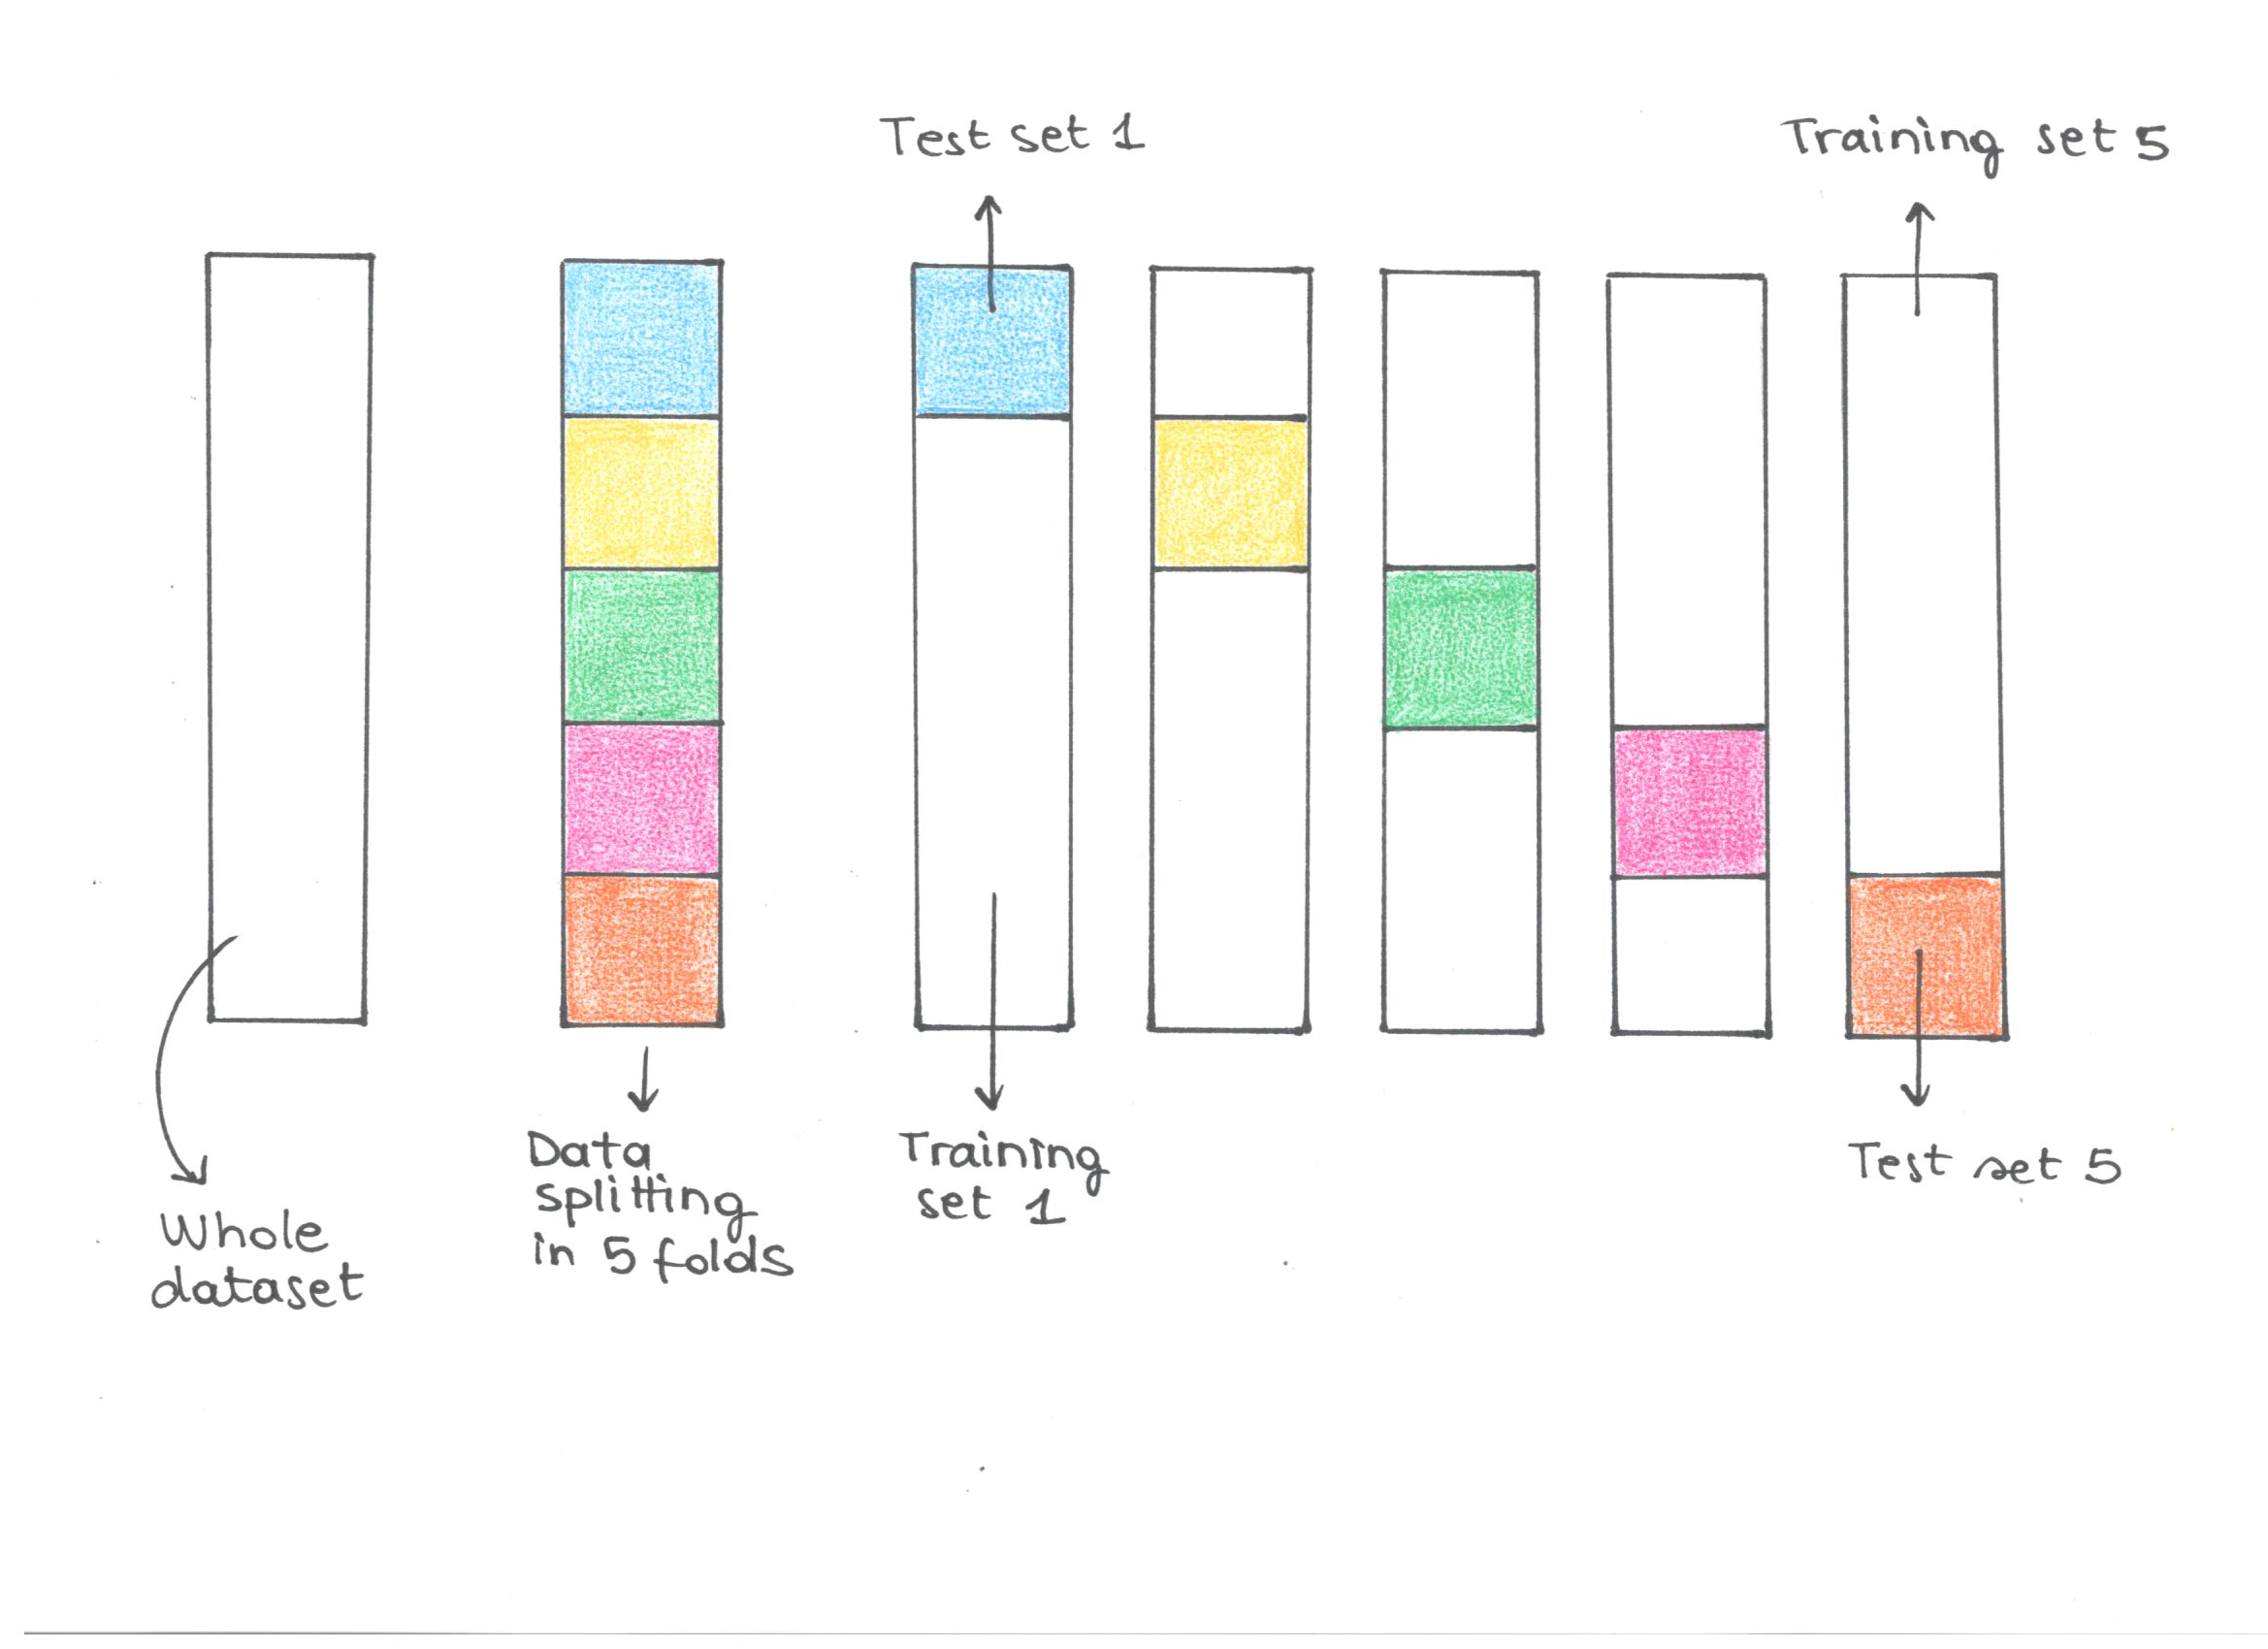 Test set 1
Training set 5
Whole
dataset
Data
splitting
in 5 folds
Training
set 1
Test set 5